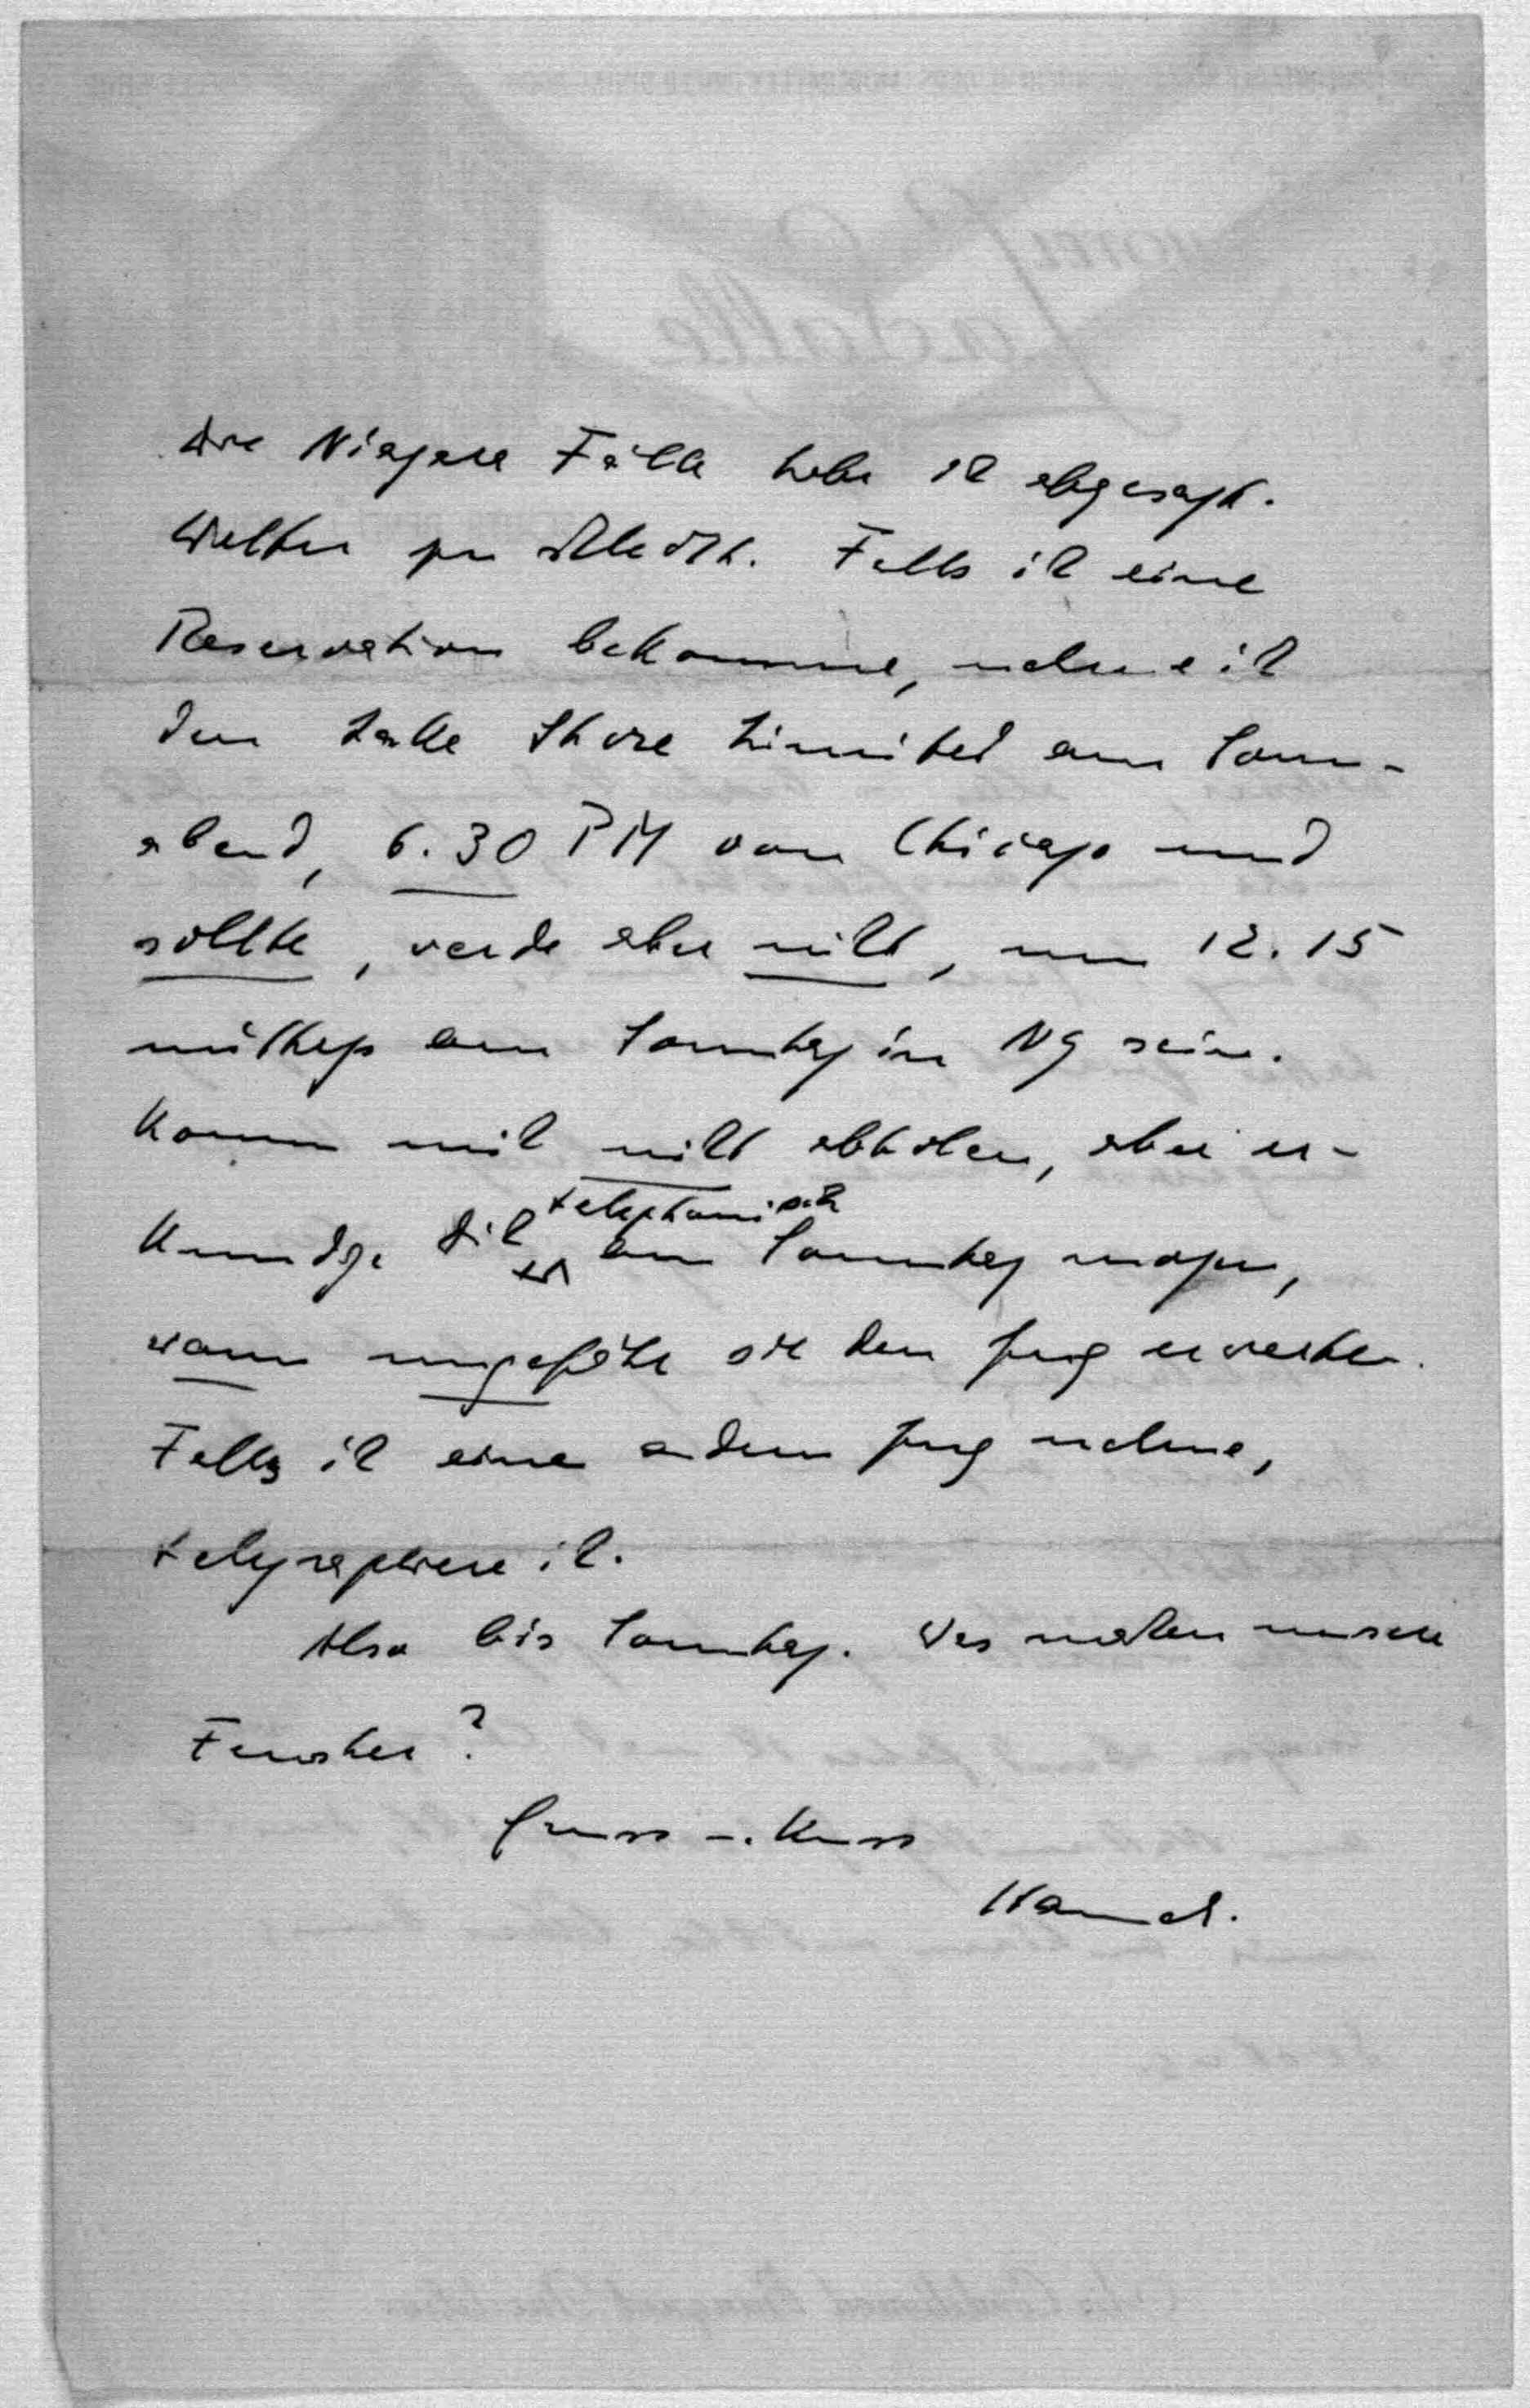 Die Niagara Fälle habe ich abgesagt.
Wetter zu schlecht. Falls ich eine
Reservation bekomme, nehme ich
den Lake Shore Limited am Sonn-
abend, 6.30 PM von Chicago und
sollte, werde aber nicht, um 12.15
mittags am Sonntag in NY sein.
Komm mich nicht abholen, aber er-
kundge Dich telephonisch am Sonntag morgen,
wann ungefähr sie den Zug erwarten.
Falls ich eine andern Zug nehme,
telegraphiere ich.
Also bis Sonntag. Was machen unsere
Fenster?
Gruss u. Kuss